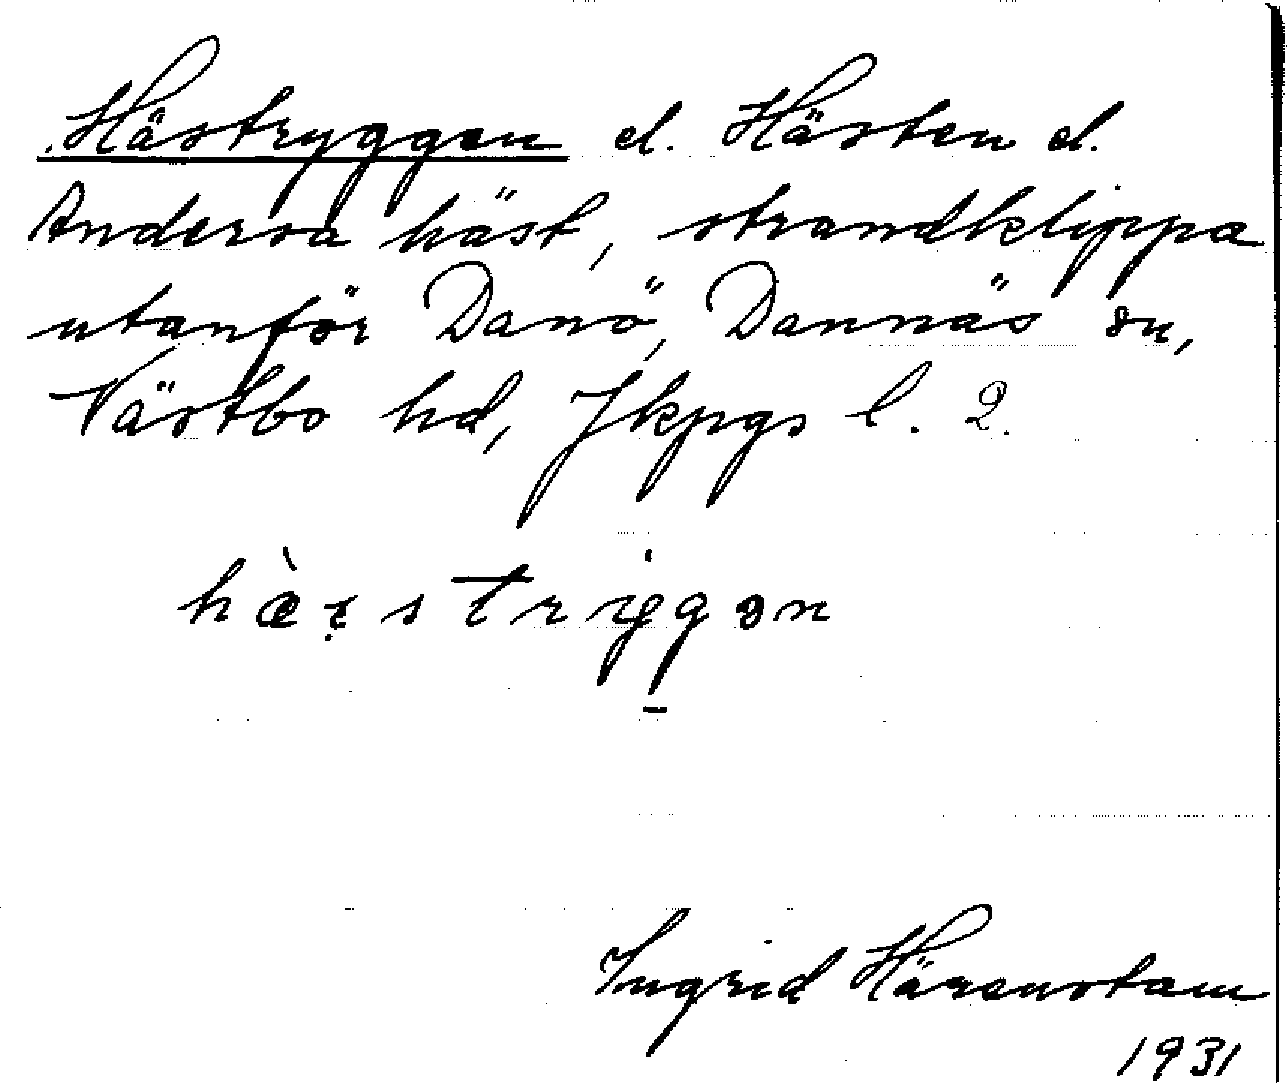 Hästryggen el. Hästen el.
Andersa häst, strandklippa
utanför Danö, Dannäs sn,
Västbo hd, Jkpgs l. 2.
Ingrid Härenstam
1931